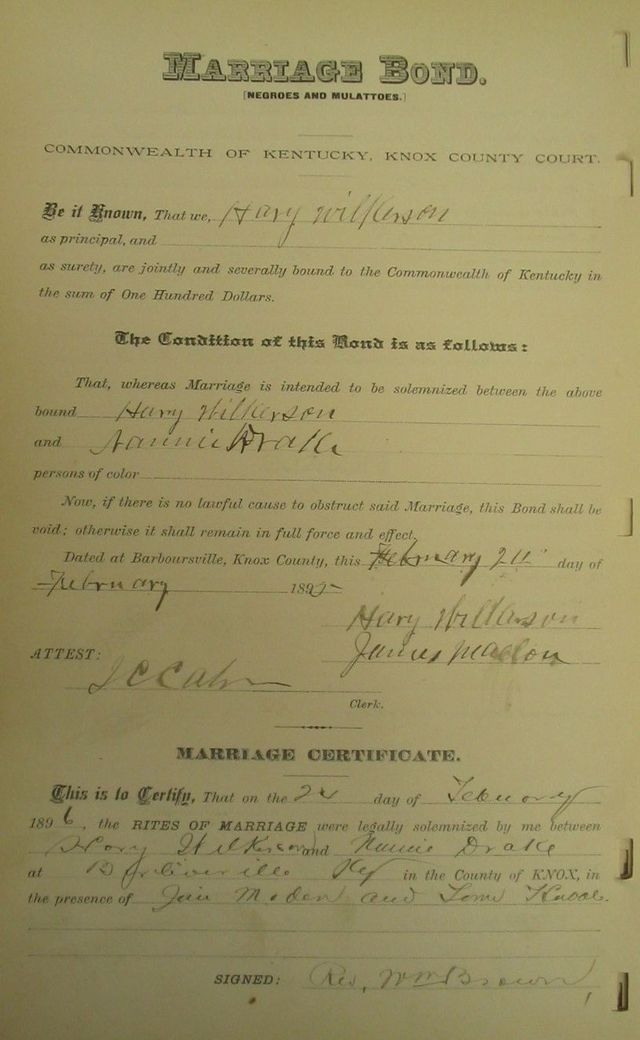 MARRIAGE BOND.
[NEGROES AND MULATTOES.]
COMMONWEALTH OF KENTUCKY, KNOX COUNTY COURT.
Be it Known, That we, Hary Wilkerson
as principal, and
as surety, are jointly and severally bound to the Commonwealth of Kentucky in
the sum of One Hundred Dollars.
The Condition of this Bond is as follows:
That, whereas Marriage is intended to be solemnized between the above
bound Hary Wilkerson
and Nannie Drake
persons of color
Now, if there is no lawful cause to obstruct said Marriage, this Bond shall be
void; otherwise it shall remain in full force and effect.
Dated at Barboursville, Knox County, this February day of
February 189
Hary Wilkerson
ATTEST: James
Clerk.
MARRIAGE CERTIFICATE.
This is to Certify, That on the day of
1896, the RITES OF MARRIAGE were legally solemnized by me between
Hary Wilkerson and Nannie Drake
at Ky in the County of KNOX, in
the presence of and
SIGNED: Rev, Wm Brown